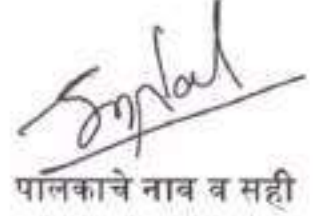 पालकाचे नाव व सही